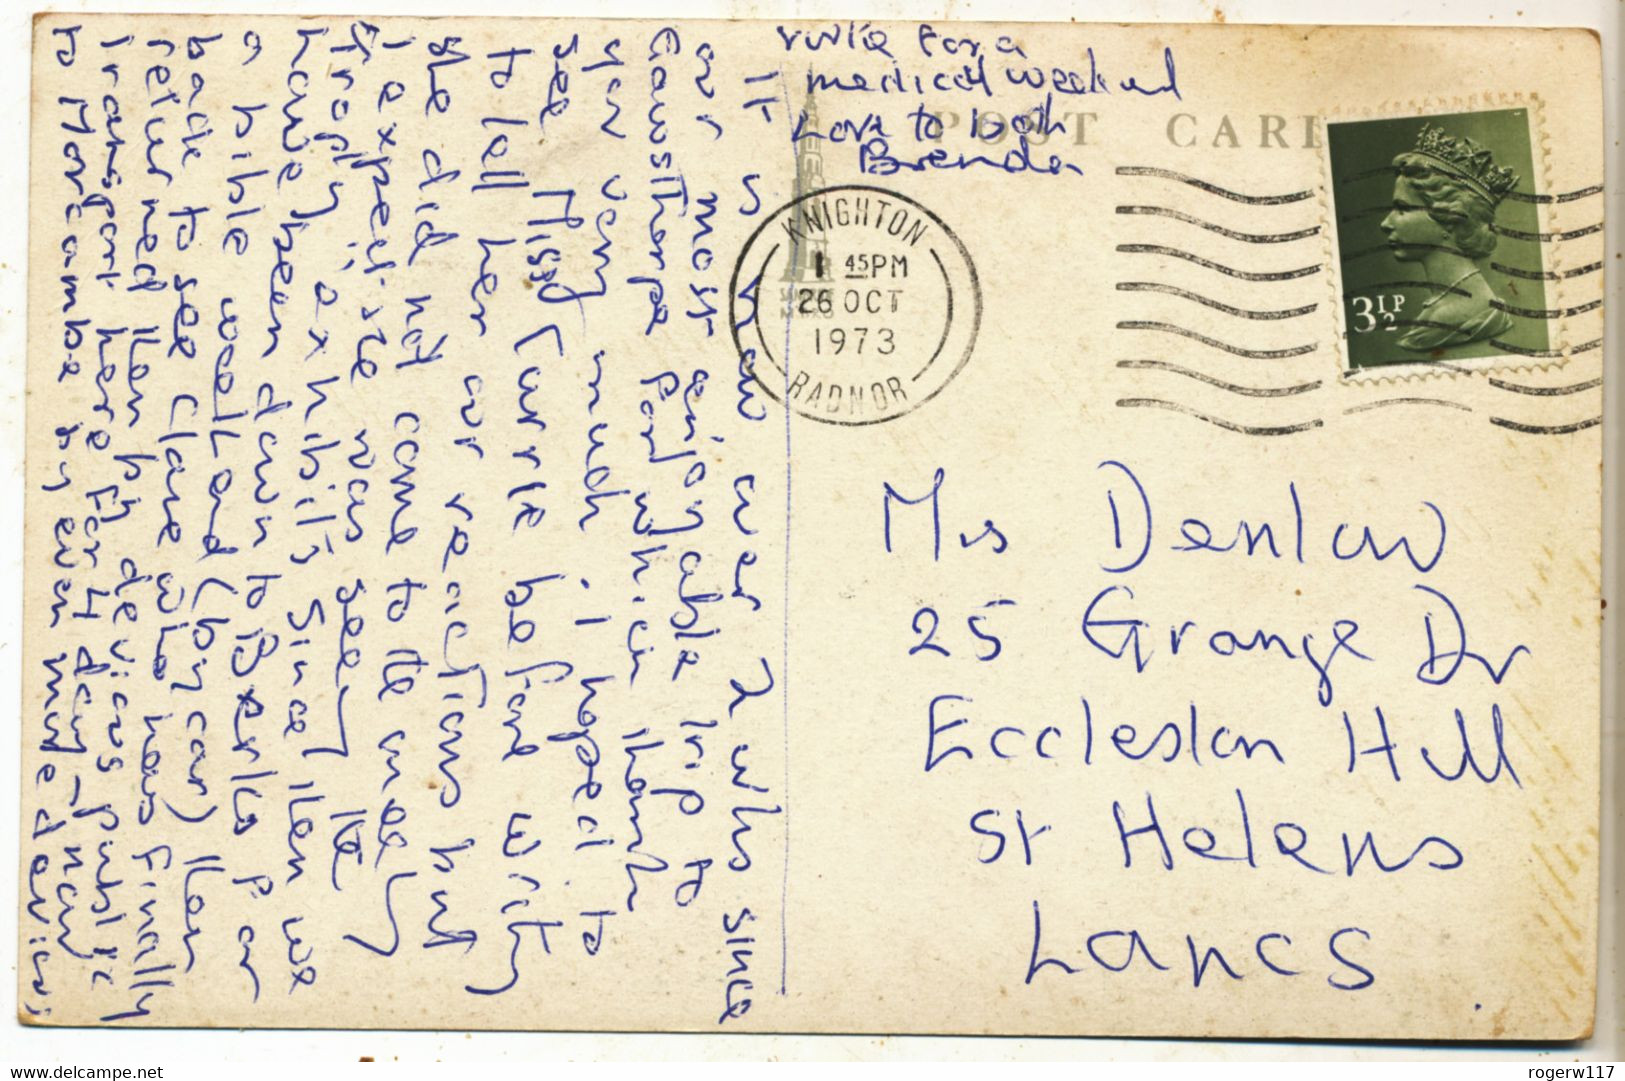 It is now over 2 wks since
our most enjoyable trip to
Gawsthorpe for which thank
you very much. I hoped to
see Miss Currie before writing
to tell her our reactions but
she did not come to the meeting
I expect she was seeing the
trophy exhibits Since then we
have been down to Berks for
a bible weekend (by car) then
back to see Clare who has finally
returned then by devious public
transport here for 4 days - now
to Morcambe by even more devious
route for a
medical weekend
Love to both
Brenda
POST CARD
KNIGHTON
1 45PM
26 OCT
1973
RADNOR
3½P
Mrs Denlow
25 Grange Dr
Eccleston Hill
St Helens
Lancs
delcampe.net
rogerw117